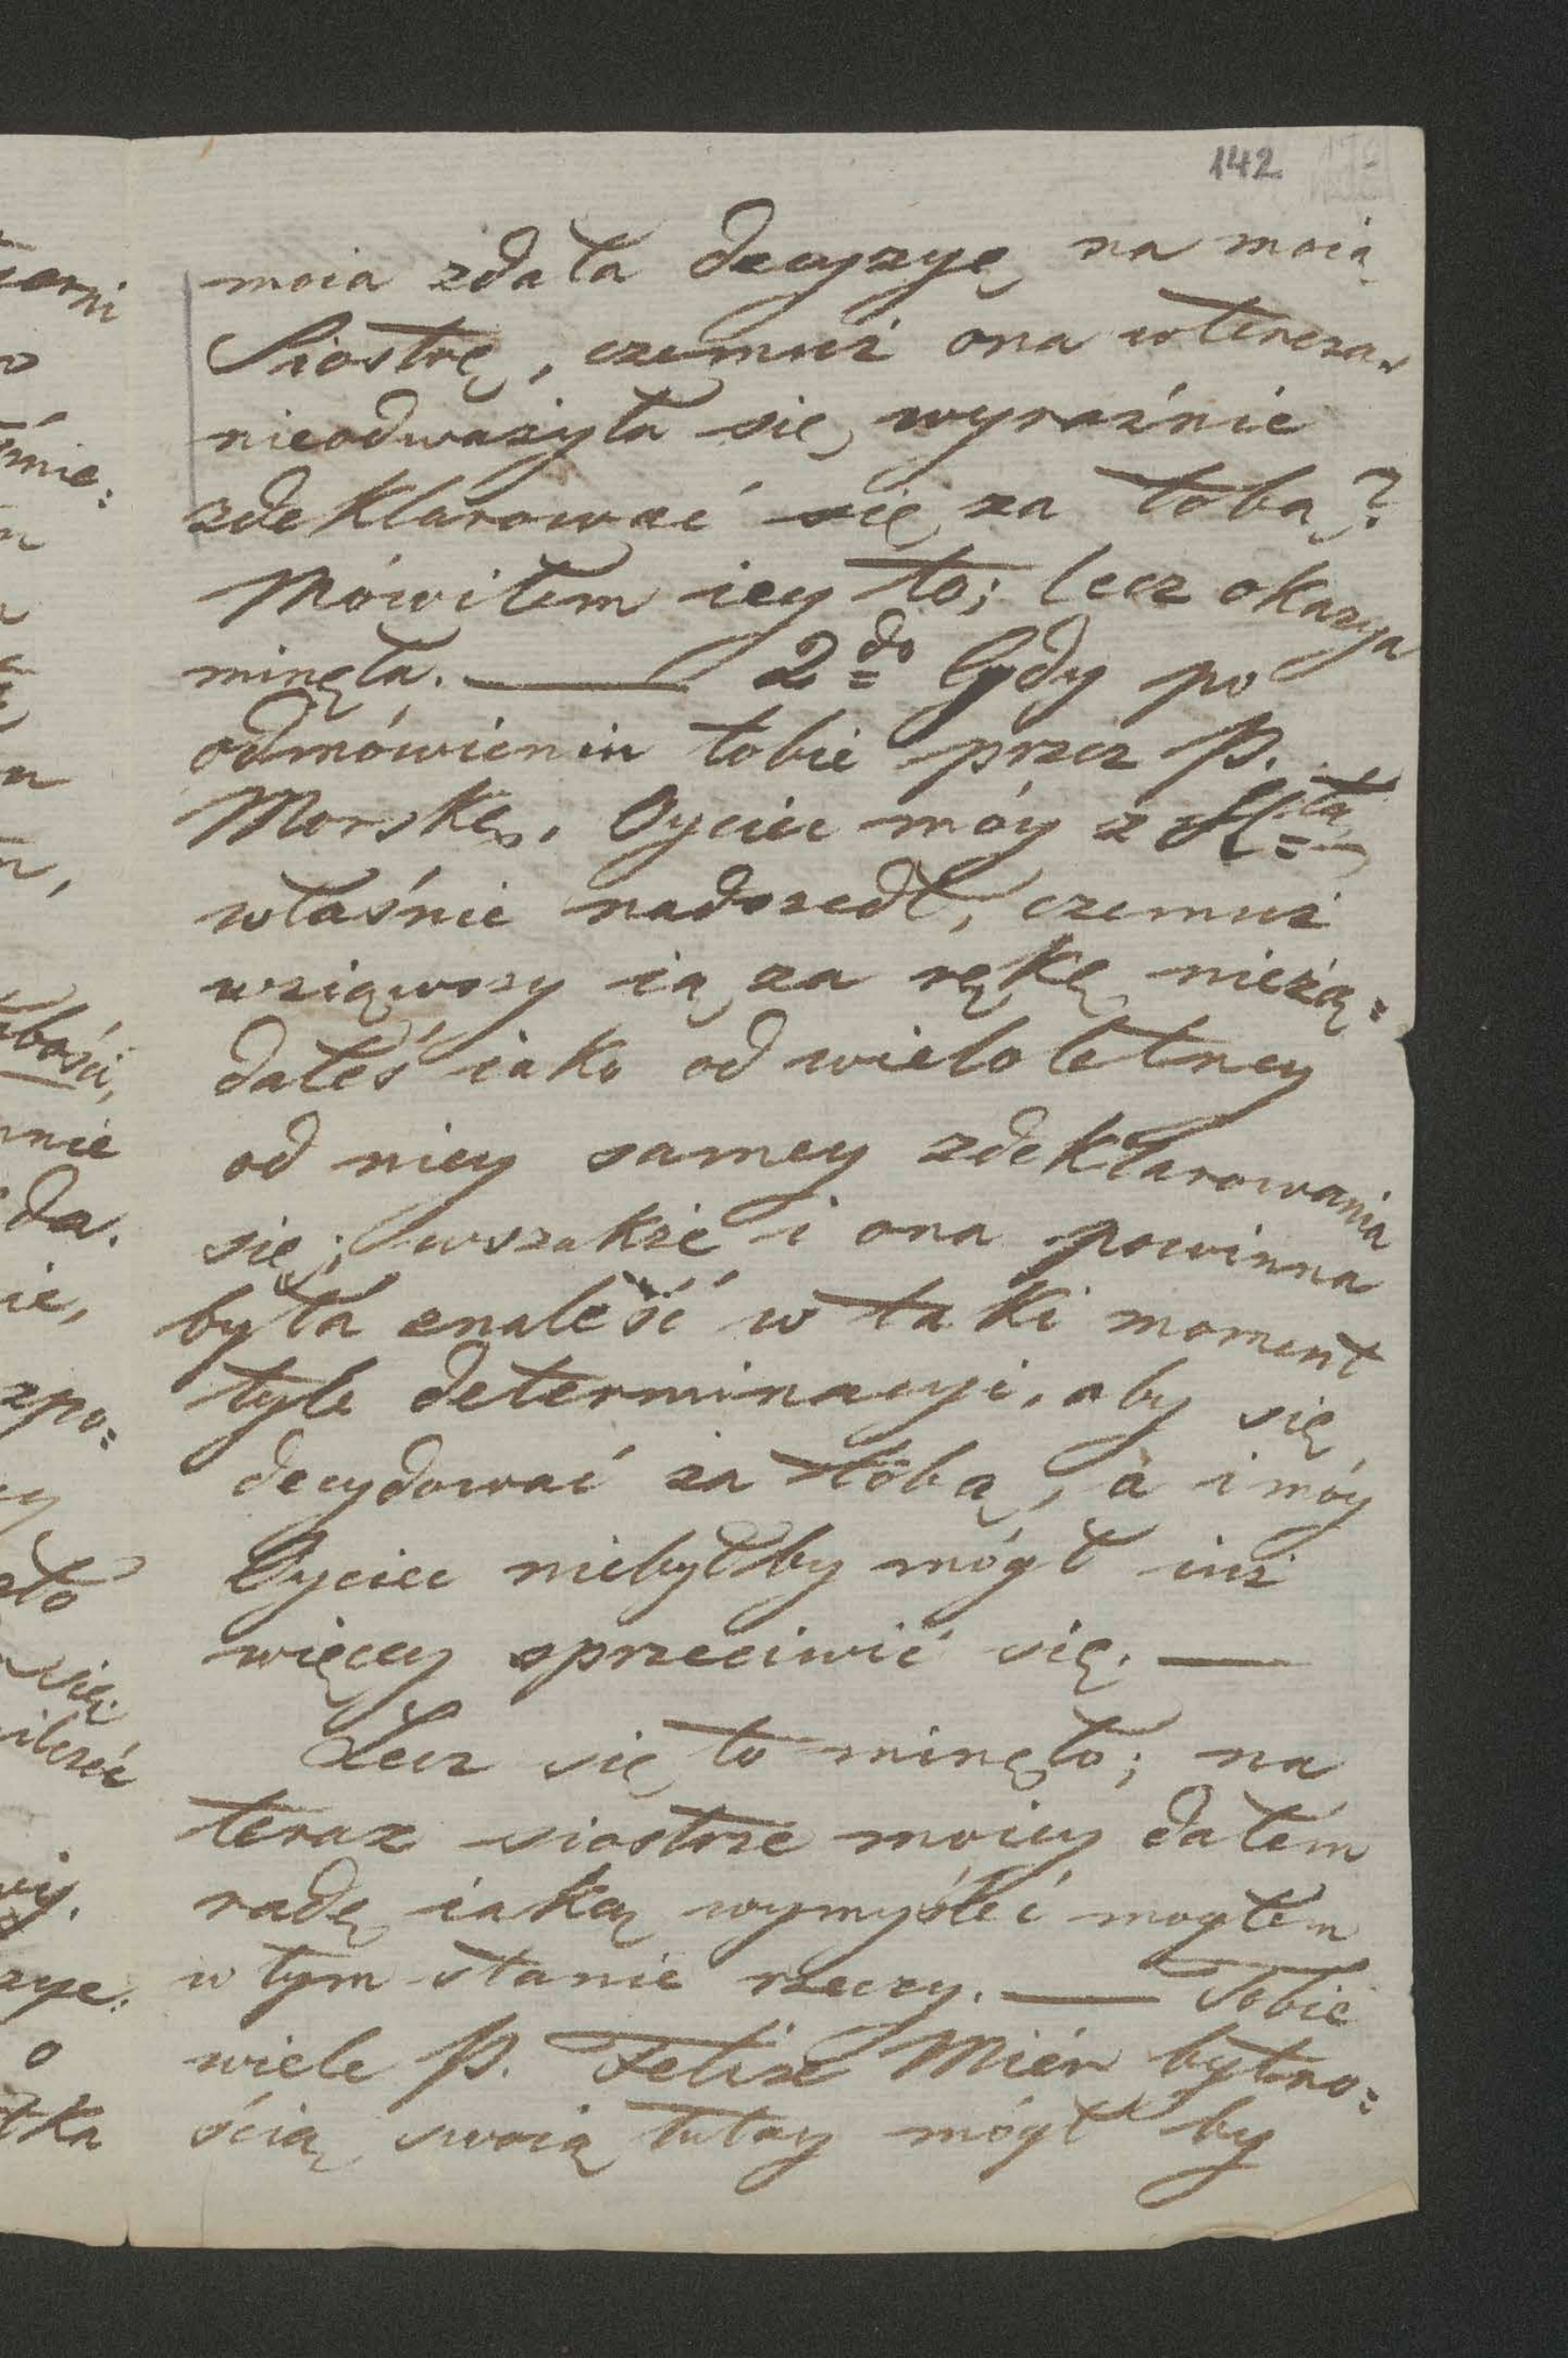 142
moia zdała decyzyę na moią
Siostrę, czemuż ona wtenczas
nieodważyła się wyraźnie
zdeklarować się za tobą?
Mówiłem iey to; lecz okazya
minęła. — 2do Gdy po
odmówieniu tobie przez P.
Morskę, Oyciec móy z
właśnie nadszedł, czemuż
wziąwszy ią za rękę nieżą=
dałeś iako od wieloletney
od niey samey zdeklarowania
się; wszakże i ona powinna
była znaleść w taki moment
tyle determinacyi, aby się
decydować za tobą, a i móy
Oyciec niebyłby mógł iuż
więcey sprzeciwić się. —
Lecz się to minęło; na
teraz siostrze moiey dałem
radę iaką wymyśleć mogłem
w tym stanie rzeczy. — Tobie
wiele P. Felix Miér bytno=
ścią swoią tutay mógł by